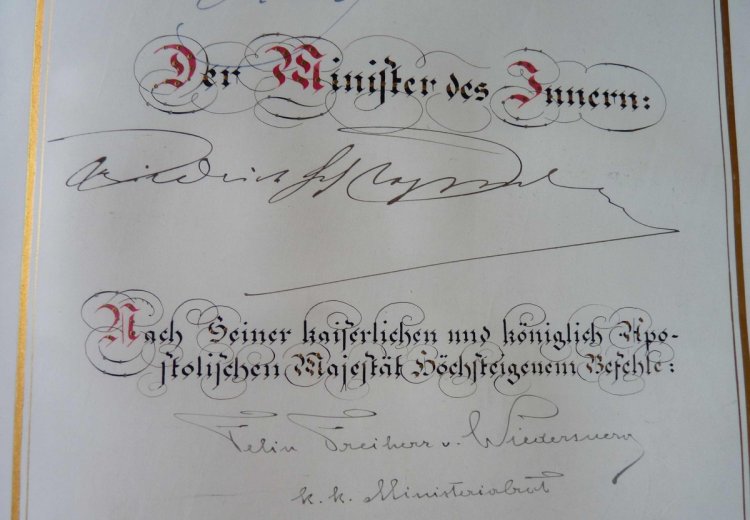 Der Minister des Innern:
Friedrich
Nach Seiner kaiserlichen und königlich Apo-
stolischen Majestät Höchsteigenem Befehle:
Felix Freiherr v.
k. k. Ministerialrat